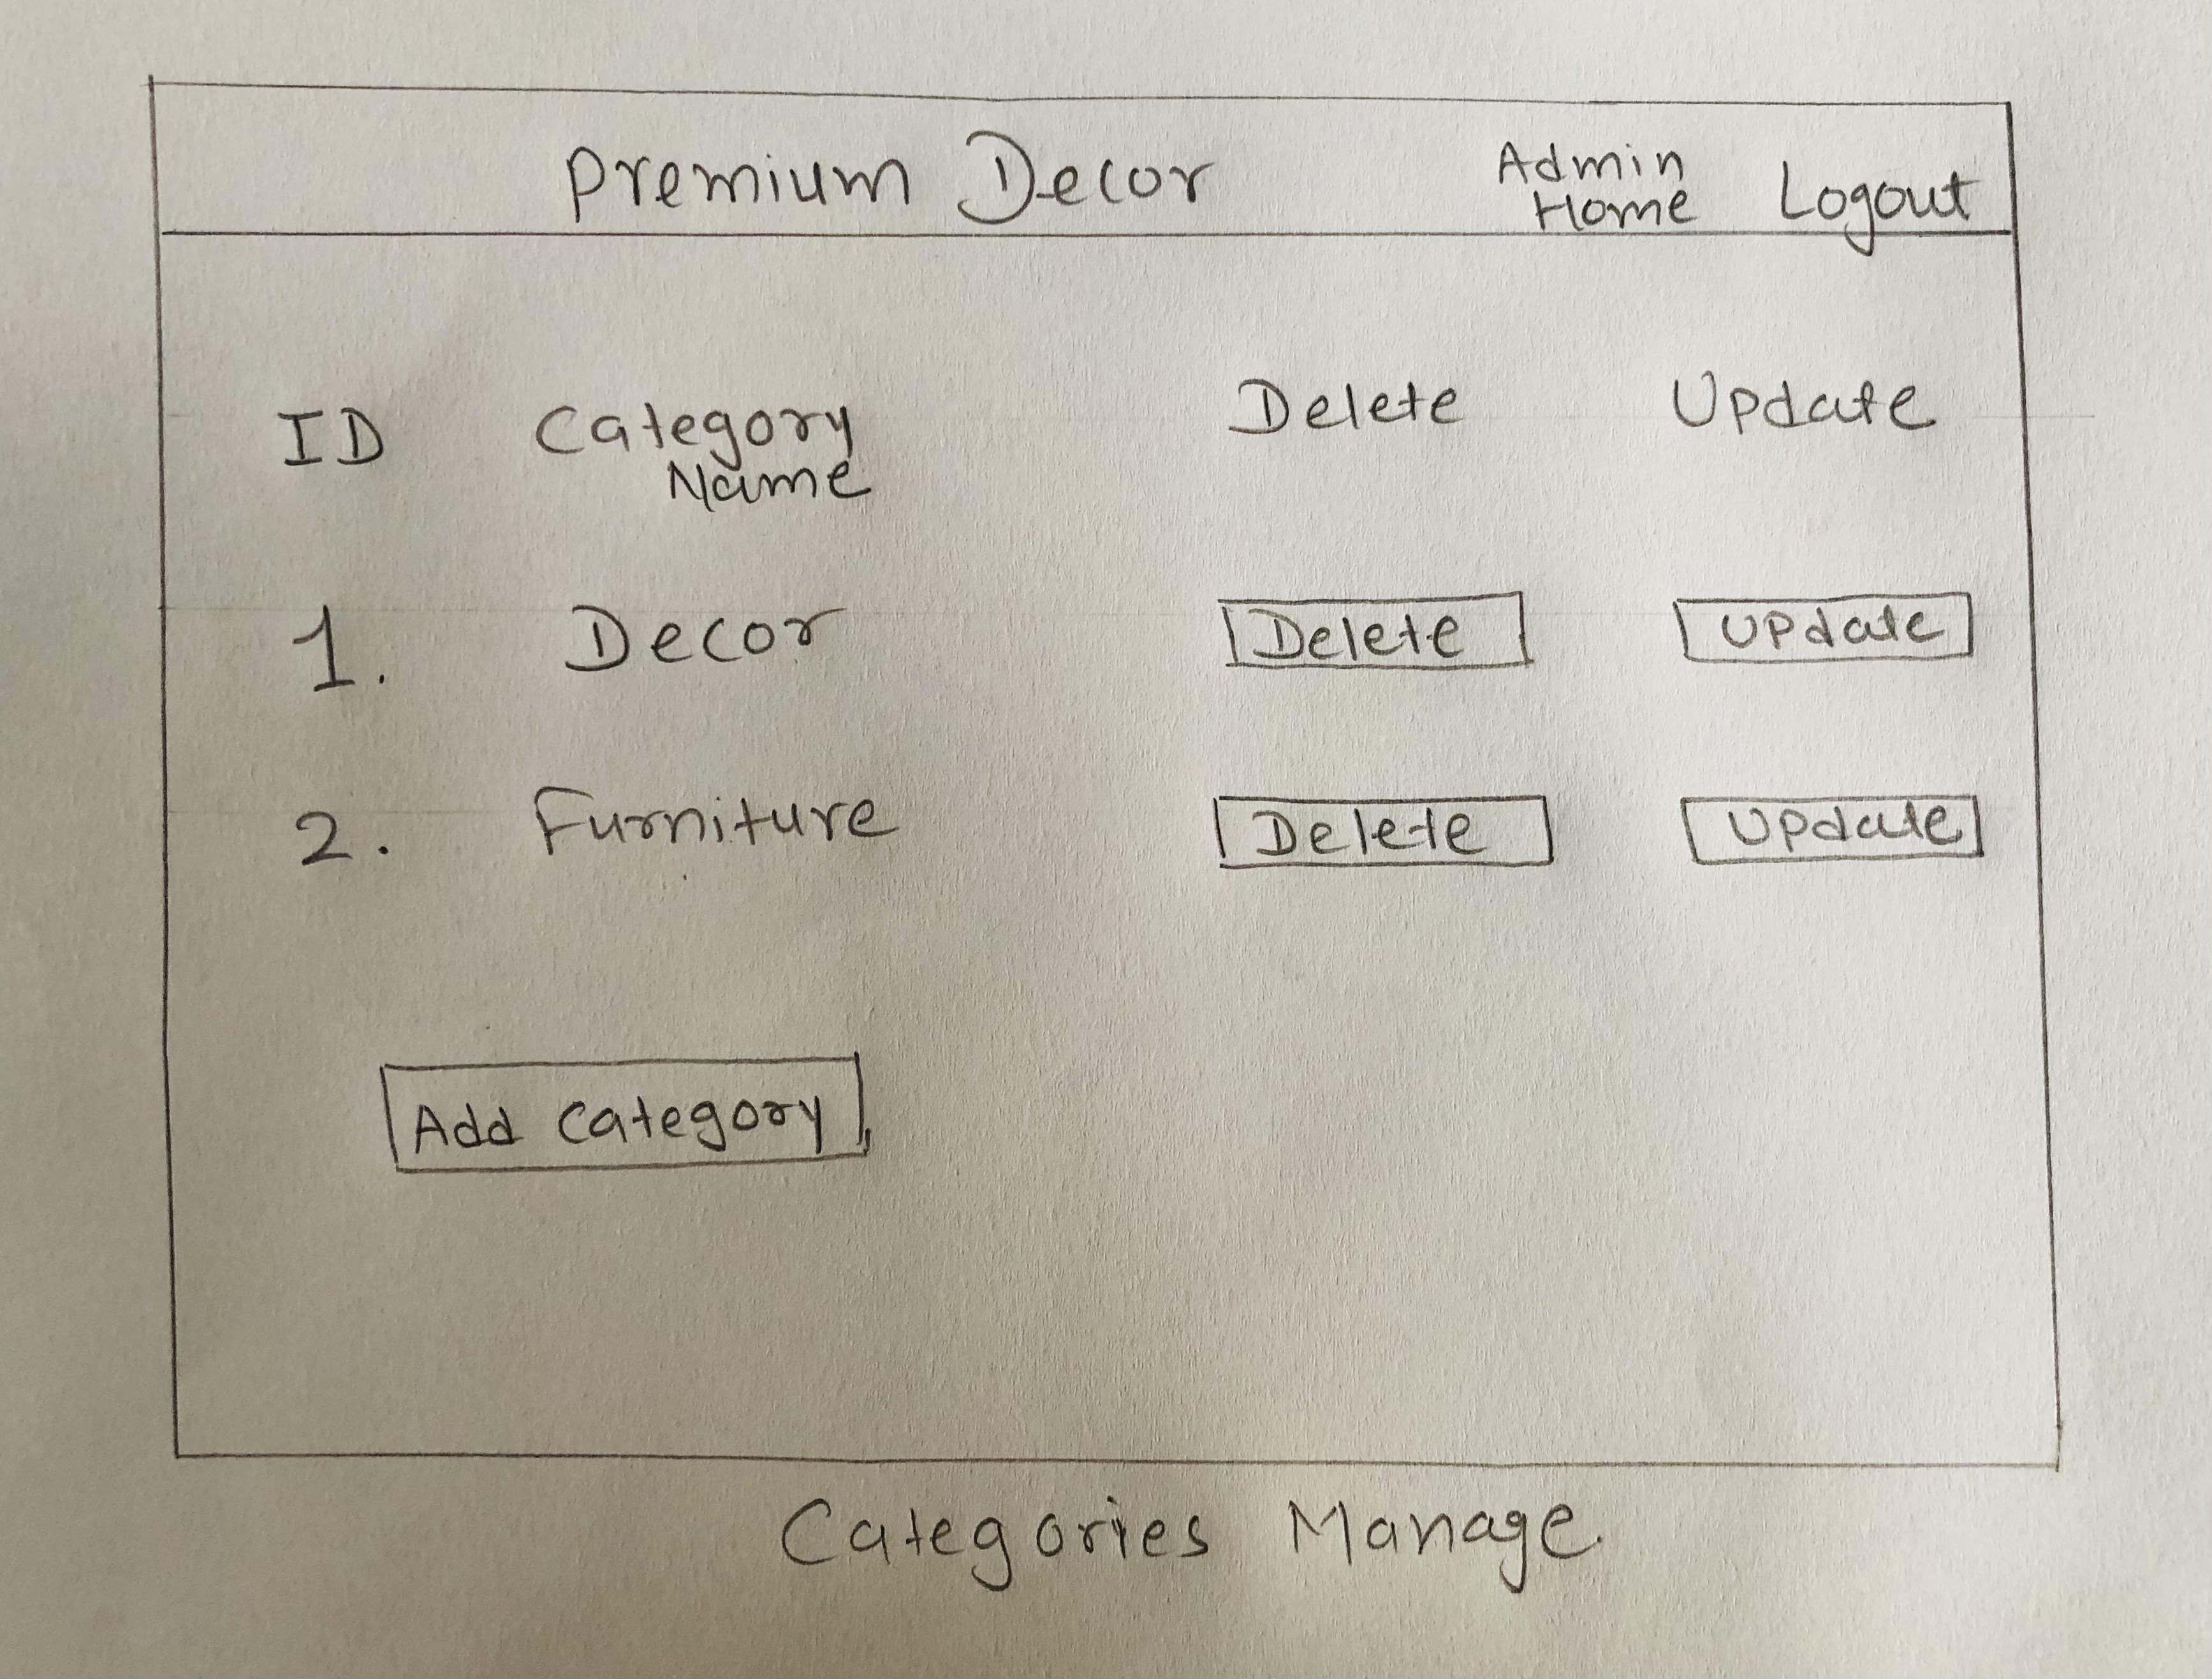 Premium Decor Admin Home Logout
ID Category Name Delete Update
1. Decor Delete Update
2. Furniture Delete Update
Add Category
Categories Manage